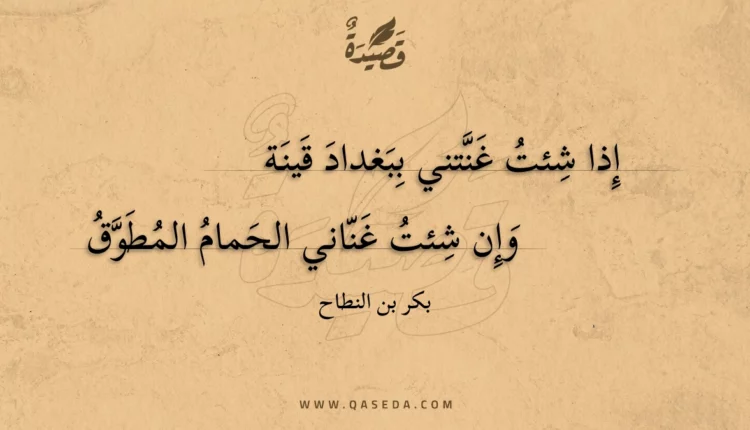 قَصِيْدَةٌ
إِذا شِئتُ غَنَّتني بِبَغدادَ قَينَة
وَإِن شِئتُ غَنّاني الحَمامُ المُطَوَّقُ
بكر بن النطاح
WWW.QASEDA.COM